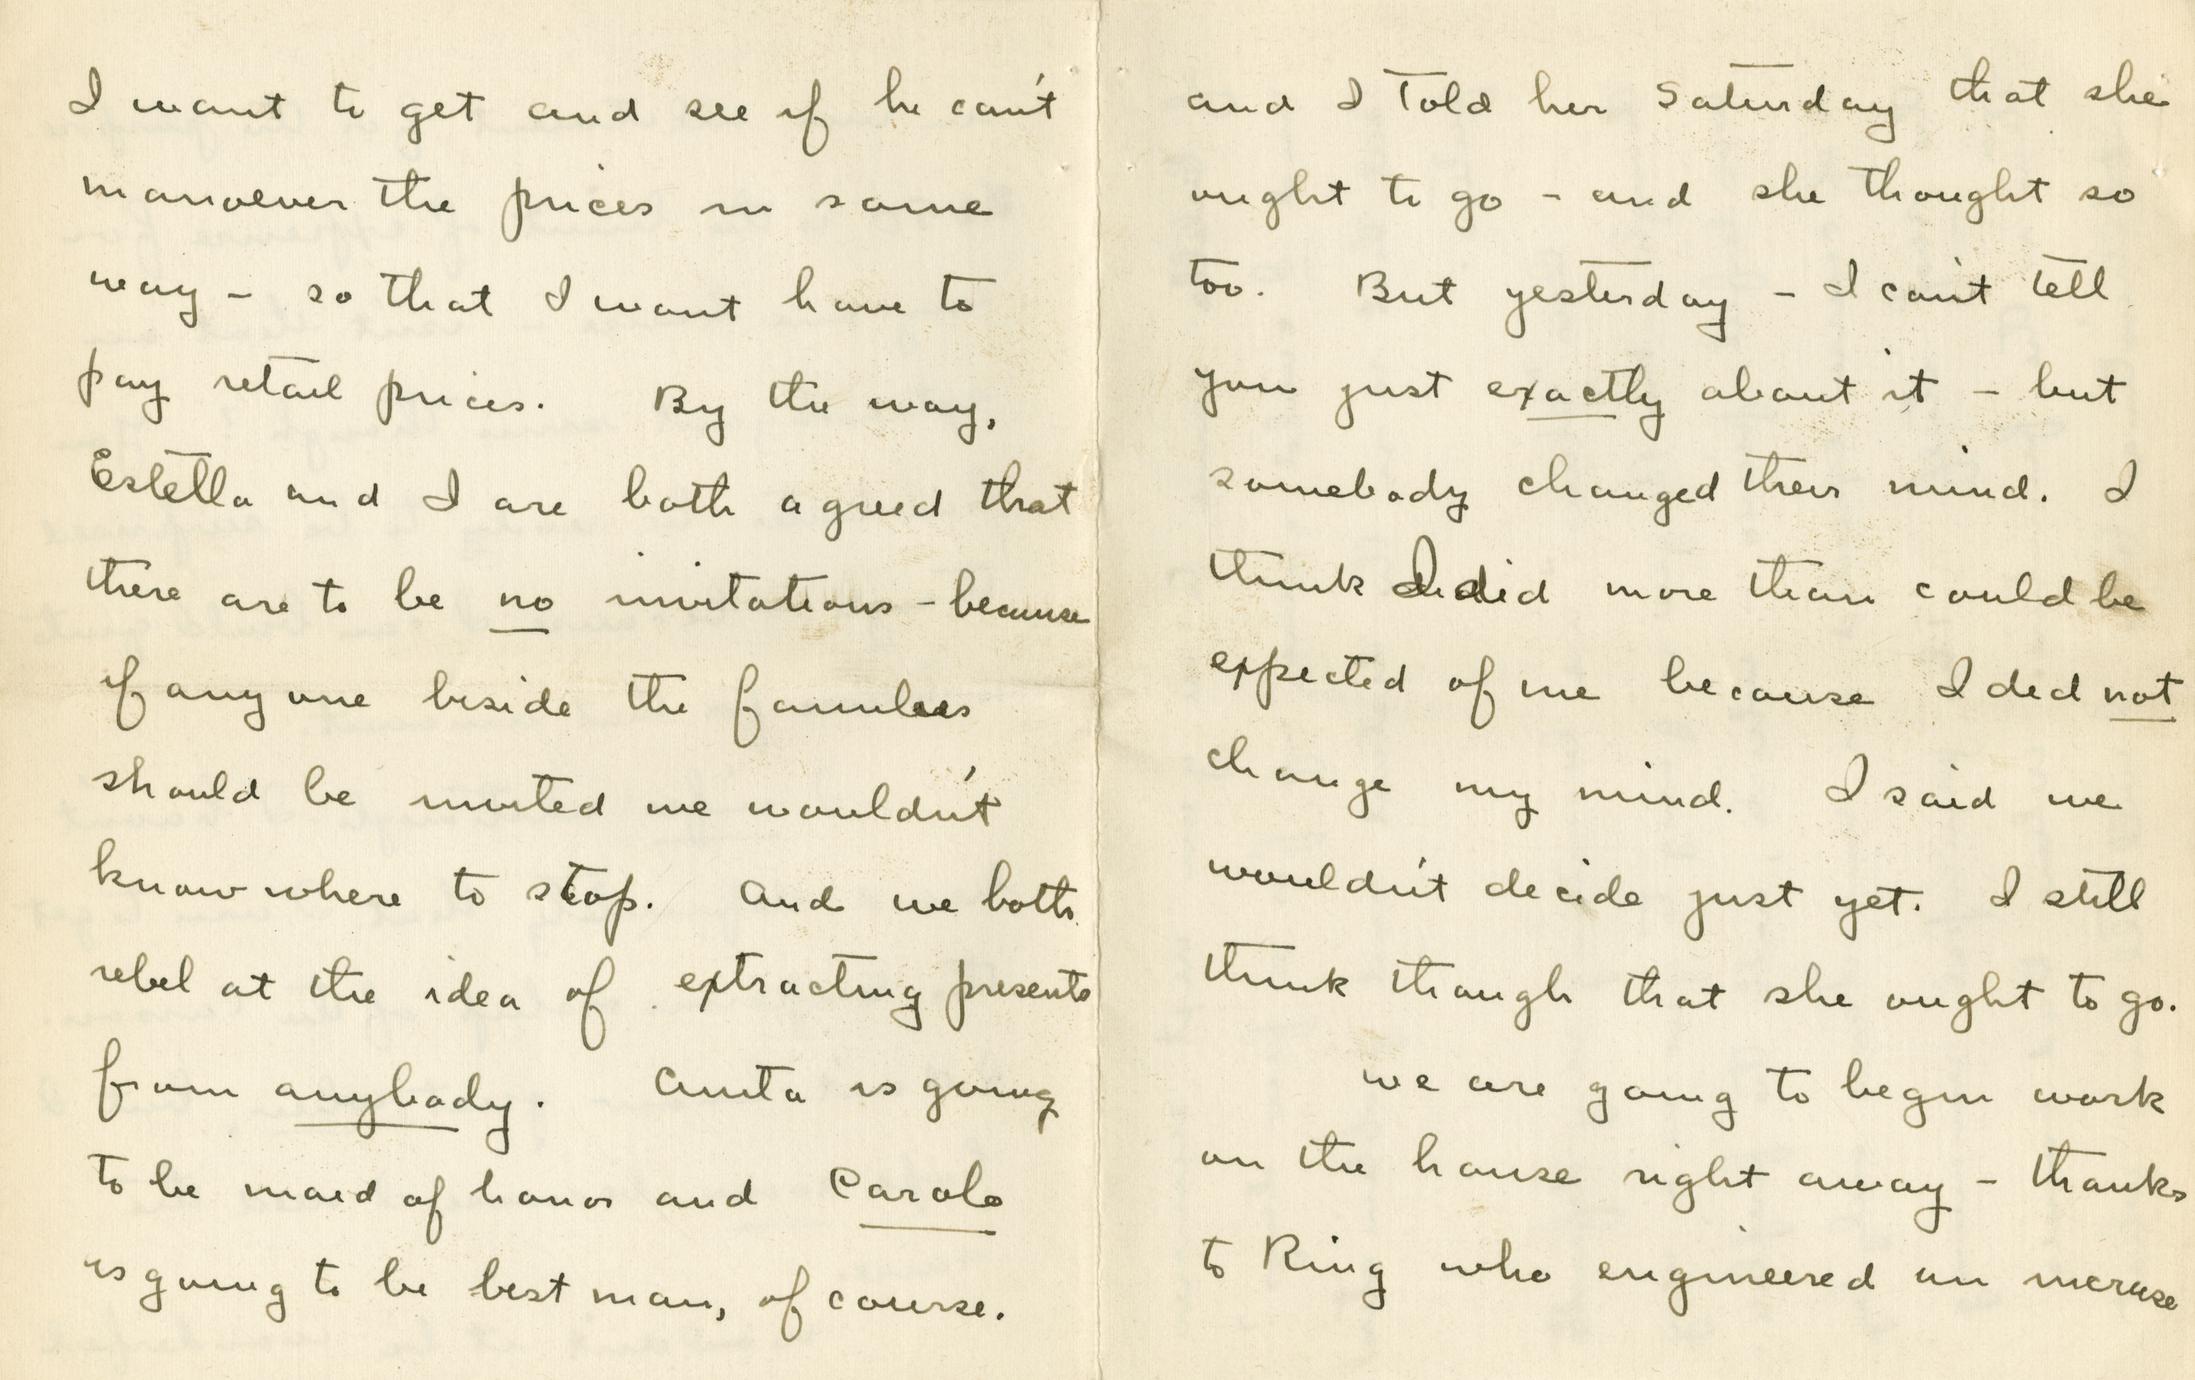 I want to get and see if he can't
manoever the prices in some
way - so that I wont have to
pay retail prices. By the way,
Estella and I are both agreed that
there are to be no invitations - because
if any one beside the families
should be invited we wouldn't
know where to stop. And we both
rebel at the idea of extracting presents
from anybody. Anita is going
to be maid of honor and Carol
is going to be best man, of course.
and I told her Saturday that she
ought to go - and she thought so
too. But yesterday - I can't tell
you just exactly about it - but
somebody changed their mind. I
think I did more than could be
expected of me because I did not
change my mind. I said we
wouldn't decide just yet. I still
think though that she ought to go.
We are going to begin work
on the house right away - thanks
to Ring who engineered an increase